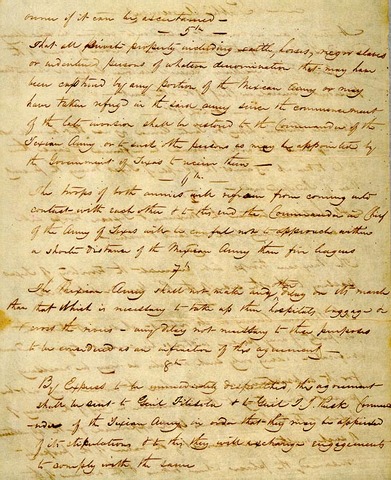 owner if it can be ascertained —
5th
That all private property including cattle, horses, negro slaves
or indentured persons of whatever denomination that may have
been captured by any portion of the Mexican Army or may
have taken refuge in the said army since the commencement
of the late invasion shall be restored to the Commander of the
Texian Army or to such other persons as may be appointed by
the Government of Texas to receive them —
6th
The troops of both armies will refrain from coming into
contact with each other & to this end the Commander in Chief
of the Army of Texas will be careful not to approach within
a shorter distance of the Mexican Army than five leagues
7th
The Mexican Army shall not make any other delay on its march
than that which is necessary to take up their hospitals, baggage &
cross the rivers — any delay not necessary to these purposes
to be considered as an infraction of this agreement —
8th
By Express to be immediately despatched this agreement
shall be sent to Genl Filisola & to Genl T. J. Rusk Comman-
der of the Texian Army in order that they may be apprised
of its stipulations & to this they will exchange engagements
to comply with the same